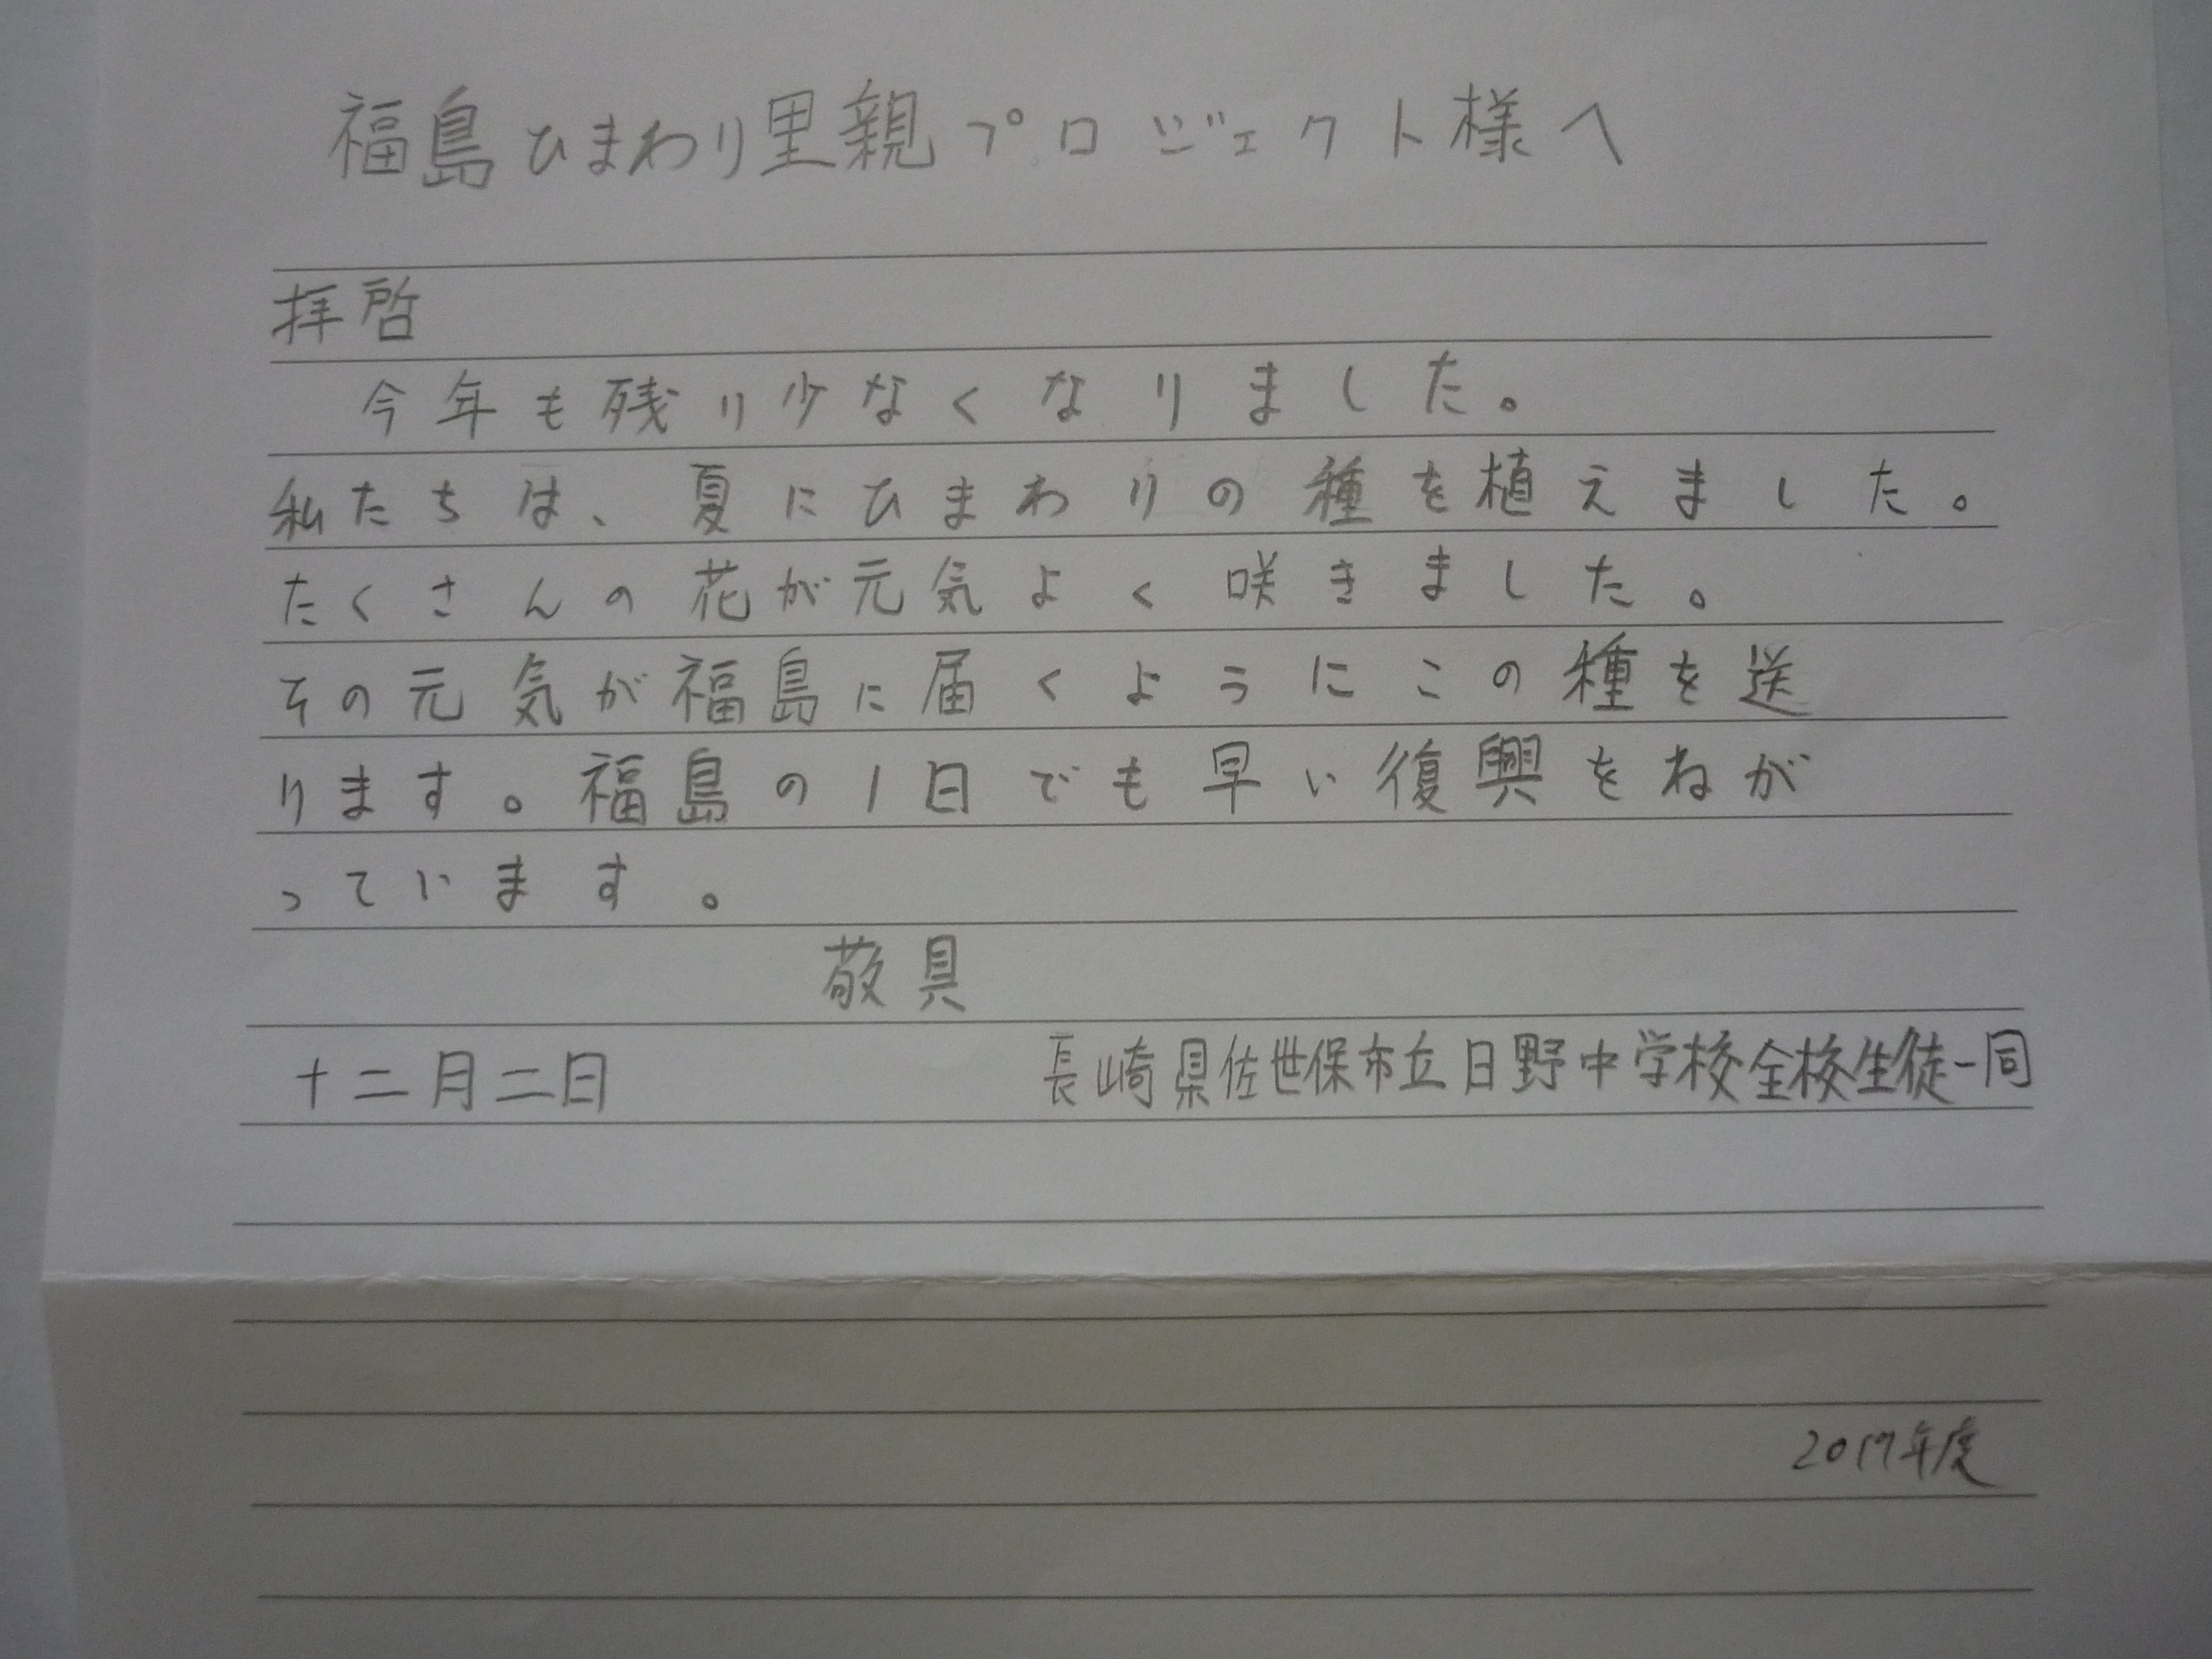 福島ひまわり里親プロジェクト様へ
拝啓
今年も残り少なくなりました。
私たちは、夏にひまわりの種を植えました。
たくさんの花が元気よく咲きました。
その元気が福島に届くようにこの種を送
ります。福島の1日でも早い復興をねが
っています。
敬具
十二月二日 長崎県佐世保市立日野中学校全校生徒一同
2017年度